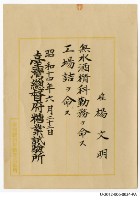 雇 楊文明
無水酒精科勤務ヲ命ス
工場詰ヲ命ス
昭和十四年六月三十日
臺灣總督府糖業試驗所